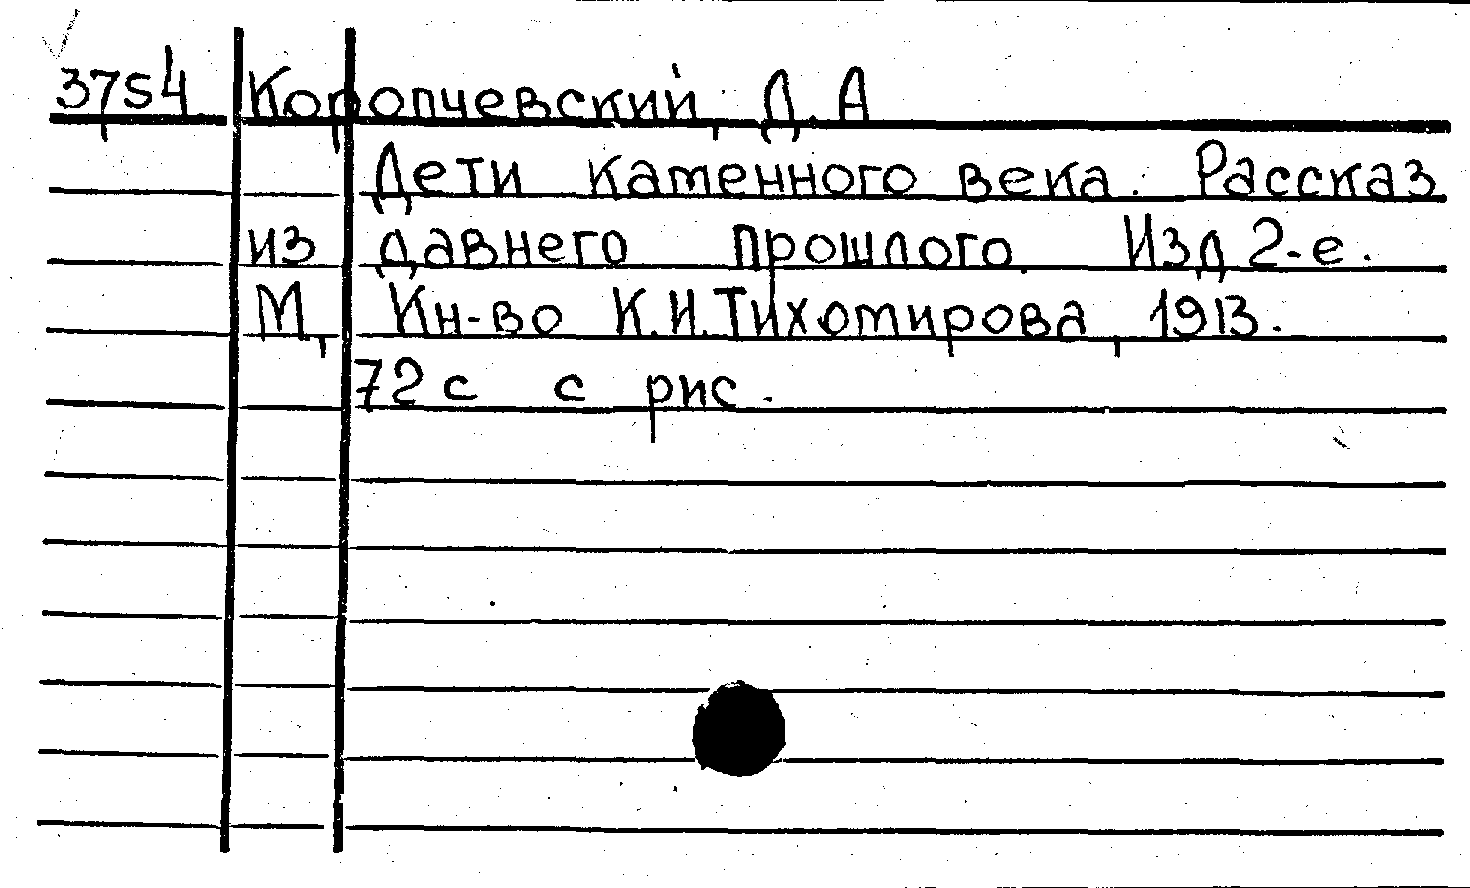 3754 Коропчевский, Д.А
Дети каменного века. Рассказ
из давнего прошлого. Изд 2-е.
М, Кн-во К.И.Тихомирова, 1913.
72 с с рис.